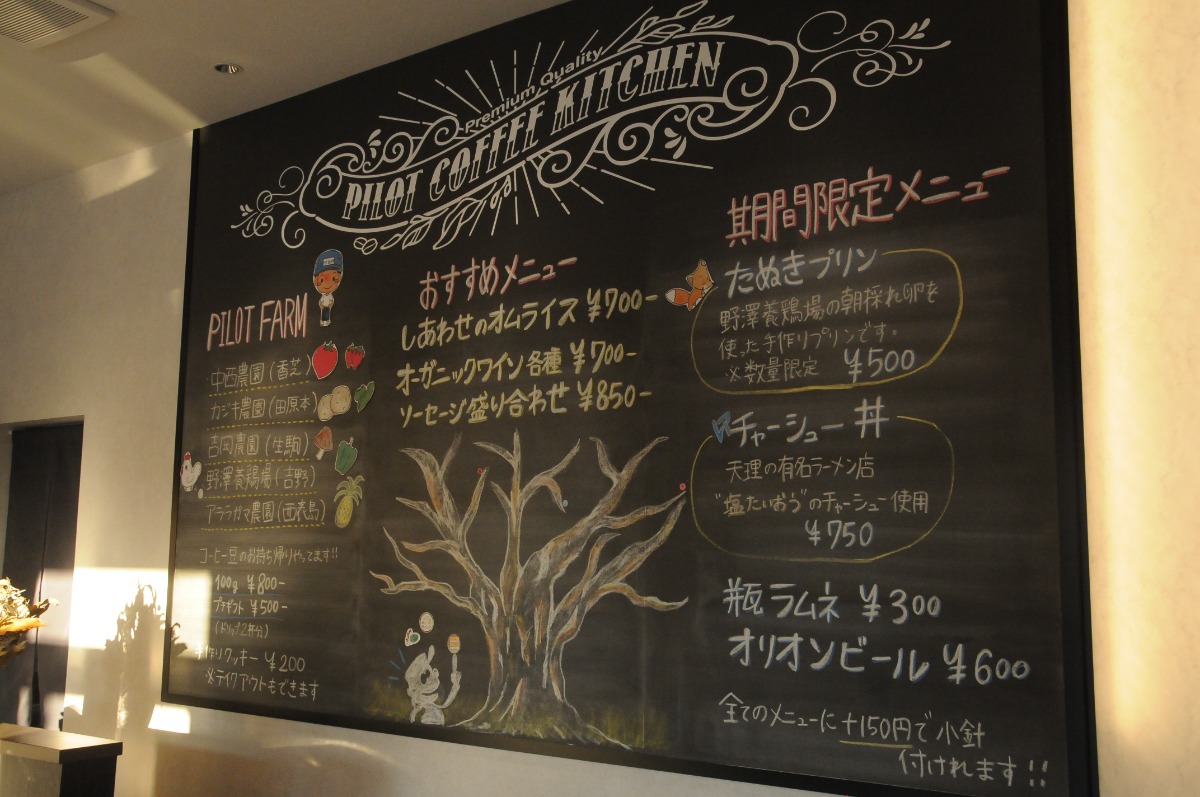 Premium Quality
PILOT COFFEE KITCHEN
PILOT FARM
・中西農園(香芝)
カジキ農園(田原本)
吉岡農園(生駒)
野澤養鶏場(吉野)
アララガマ農園(西表島)
コーヒー豆のお持ち帰りやってます!!
100g ¥800-
プチギフト ¥500-
(ドリップ2杯分)
手作りクッキー ¥200
※テイクアウトもできます
おすすめメニュー
しあわせのオムライス ¥700-
オーガニックワイン各種 ¥700-
ソーセージ盛り合わせ ¥850-
期間限定メニュー
たぬきプリン
野澤養鶏場の朝採れ卵を
使った手作りプリンです。
※数量限定 ¥500
チャーシュー丼
天理の有名ラーメン店
"塩たいおう"のチャーシュー使用
¥750
瓶ラムネ ¥300
オリオンビール ¥600
全てのメニューに+150円で小針
付けれます!!